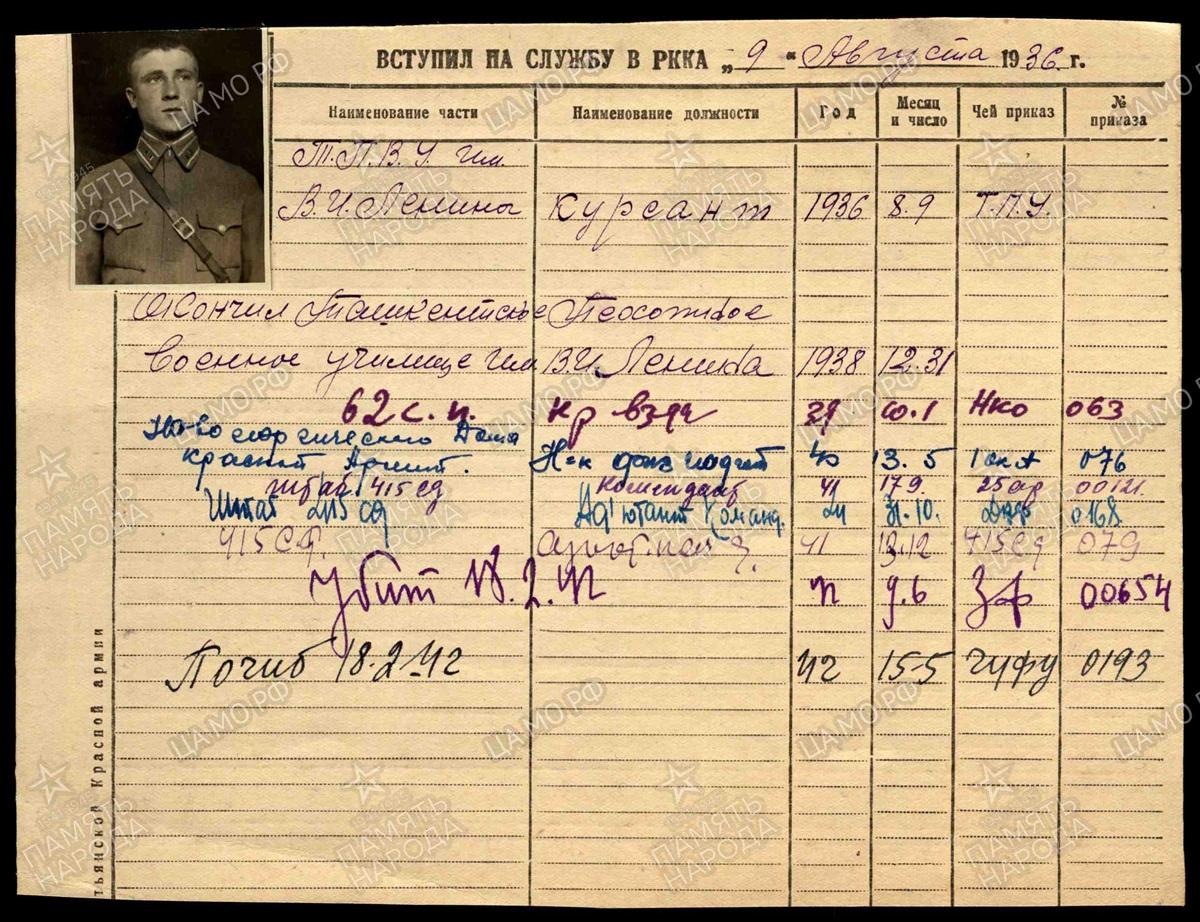 ВСТУПИЛ НА СЛУЖБУ В РККА „9“ Августа 1936 г.
Наименование части Наименование должности Год Месяц и число Чей приказ № приказа
Т.П.В.У. им.
В.И. Ленина Курсант 1936 8.9 Т.П.У.
Окончил Ташкентское Пехотное
Военное училище им В.И. Ленина 1938 12.31
62 с.п. кр взда 39 10.1 НКО 063
Красной Армии. 40 13.5 076
штаб 415 сд комендант 41 17.9. 0012
Штаб 415 сд Адъютант Команд. 41 31.10. 0168
415 сд. 41 13.12 415 сд 079
Убит 18.2.42 9.6 Зф 00654
Погиб 18-2-42 42 15-5 ГУФУ 0193
тьянской Красной армии
ЦАМО РФ
ПАМЯТЬ НАРОДА